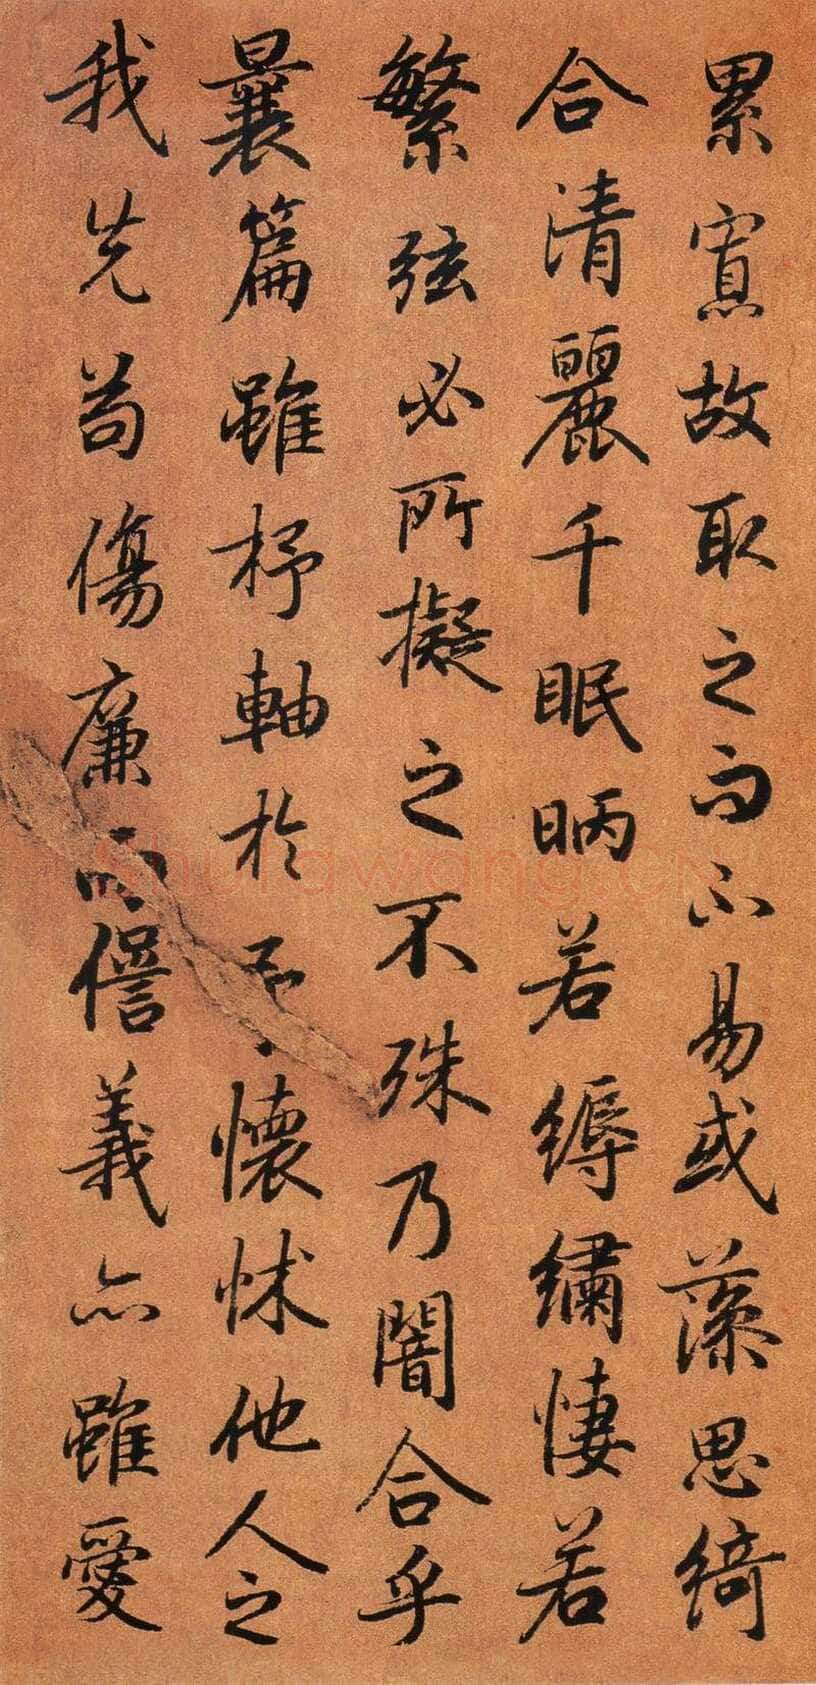 累寡故取之而不易或藻思綺
合清麗千眠昞若縟繡悽若
繁弦必所擬之不殊乃闇合乎
曩篇雖杼軸於予懷怵他人之
我先苟傷廉而諐義亦雖愛
shufawang.CN